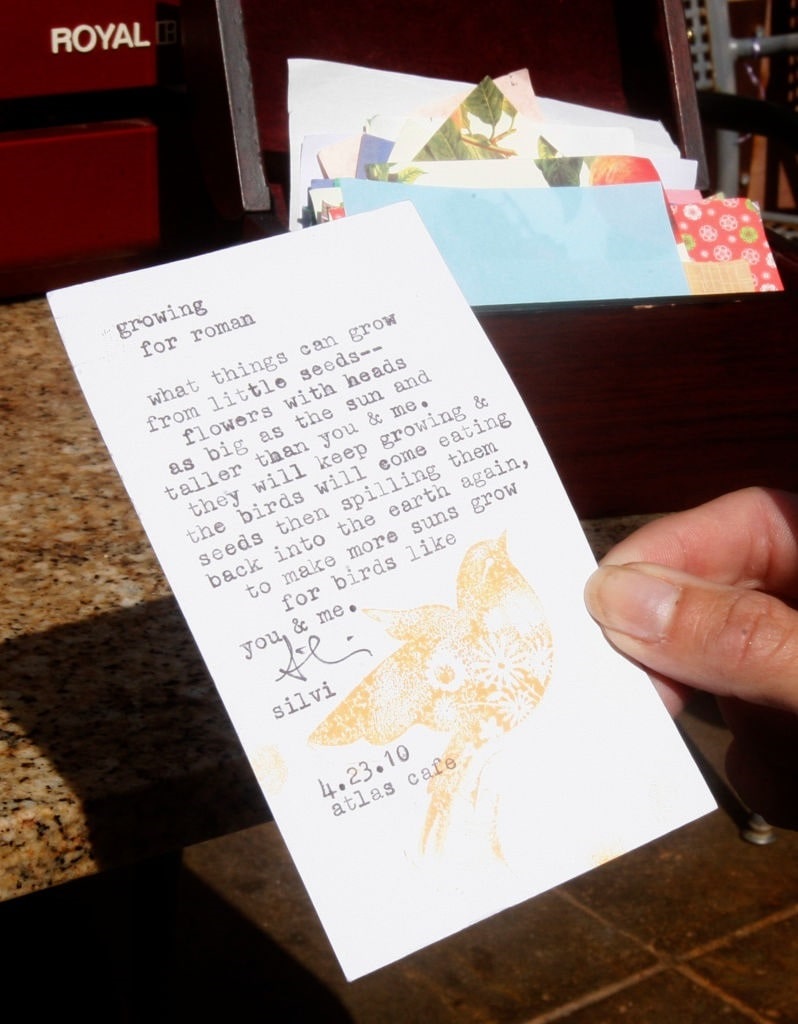 ROYAL
growing
for roman
what things can grow
from little seeds--
flowers with heads
as big as the sun and
taller than you & me.
they will keep growing &
the birds will come eating
seeds then spilling them
back into the earth again,
to make more suns grow
for birds like
you & me.
silvi
4.23.10
atlas cafe